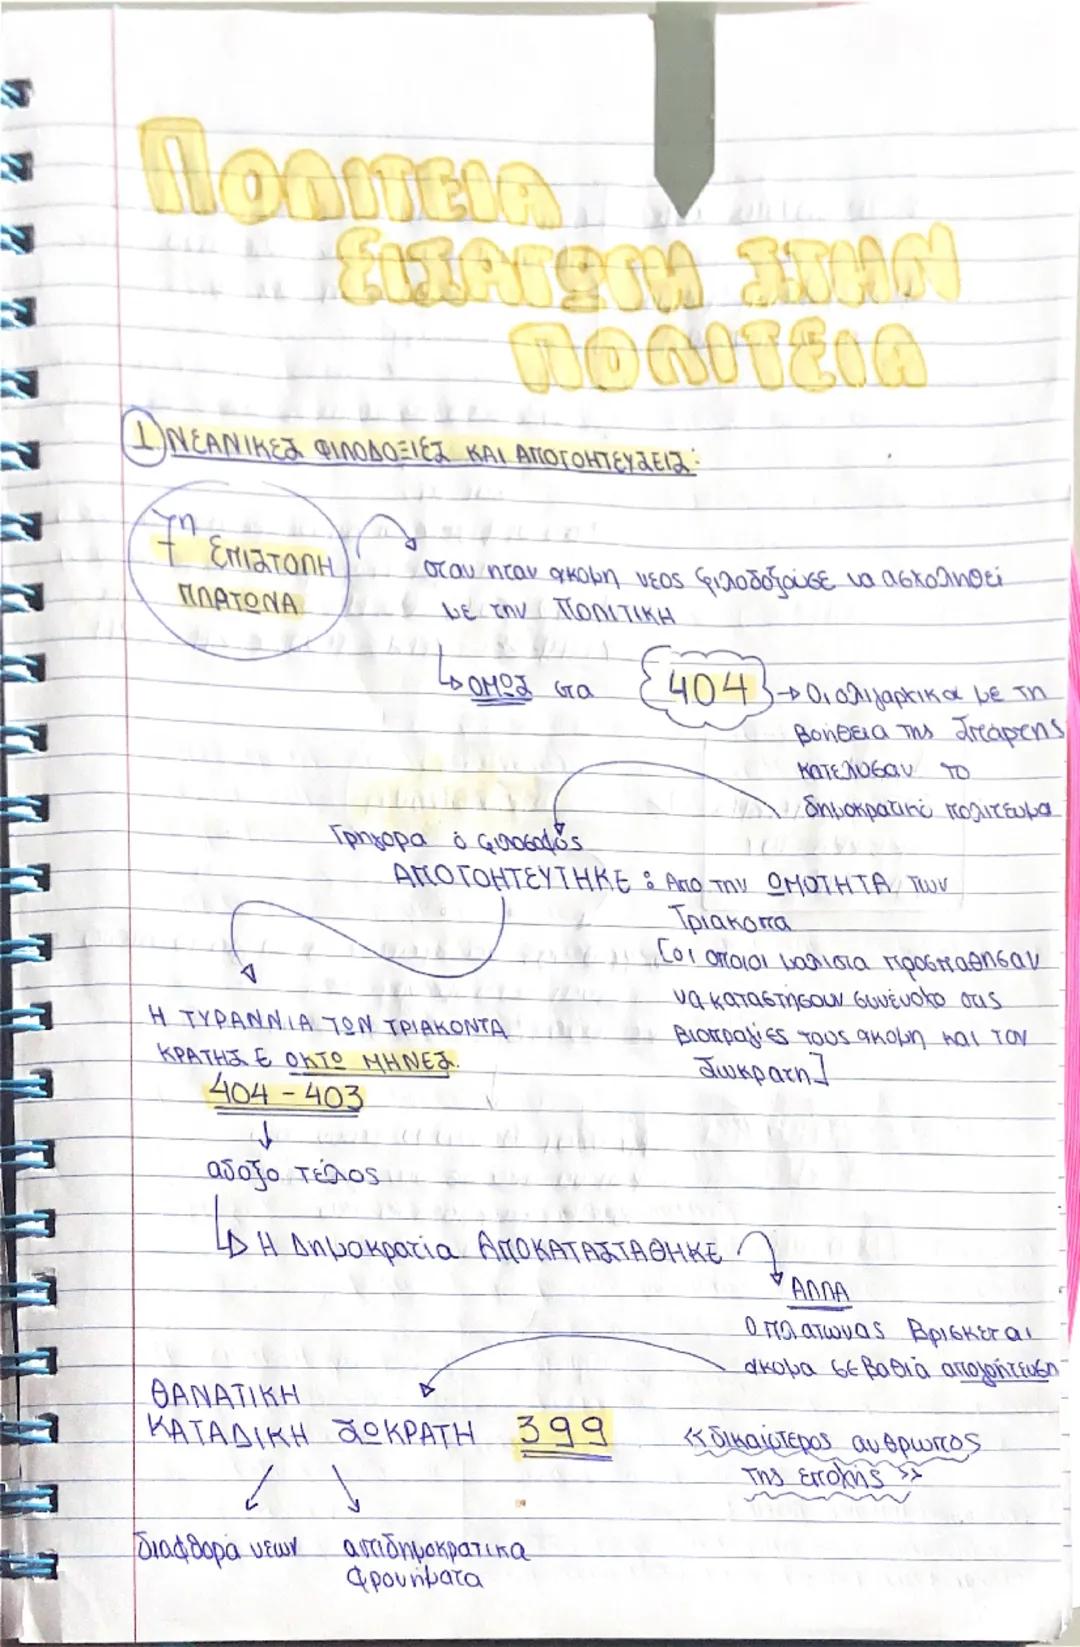 ΠΟΛΙΤΕΙΑ
ΕΙΣΑΓΩΓΗ ΣΤΗΝ
ΠΟΛΙΤΕΙΑ
1 ΝΕΑΝΙΚΕΣ ΦΙΛΟΔΟΞΙΕΣ ΚΑΙ ΑΠΟΓΟΗΤΕΥΣΕΙΣ:
7η ΕΠΙΣΤΟΛΗ
ΠΛΑΤΩΝΑ
οταν ηταν ακομη νεος φιλοδοξουσε να ασχοληθεί
με την ΠΟΛΙΤΙΚΗ
ΟΜΩΣ στα 404 → Οι ολιγαρχικοι με τη
βοήθεια της Σπάρτης
κατελυσαν το
δημοκρατικό πολιτευμα
Γρηγορα ό φιλοσοφός
ΑΠΟΓΟΗΤΕΥΤΗΚΕ : Απο την ΩΜΟΤΗΤΑ των
Τριακοντα
[οι οποιοι μαλιστα προσπαθησαν
να καταστήσουν συνένοχο στις
βιοπραγίες τους ακομη και τον
Σωκρατη]
Η ΤΥΡΑΝΝΙΑ ΤΩΝ ΤΡΙΑΚΟΝΤΑ
ΚΡΑΤΗΣΕ ΟΚΤΩ ΜΗΝΕΣ.
404 - 403
αδοξο τέλος
Η Δημοκρατία ΑΠΟΚΑΤΑΣΤΑΘΗΚΕ
ΑΛΛΑ
Ο πλατωνας Βρισκεται
ακομα σε βαθιά απογοήτευση
ΘΑΝΑΤΙΚΗ
ΚΑΤΑΔΙΚΗ ΣΩΚΡΑΤΗ 399
<<δικαιότερος ανθρωπος
της εποχής >>
διαφθορα νεων
αντιδημοκρατικα
φρονήματα